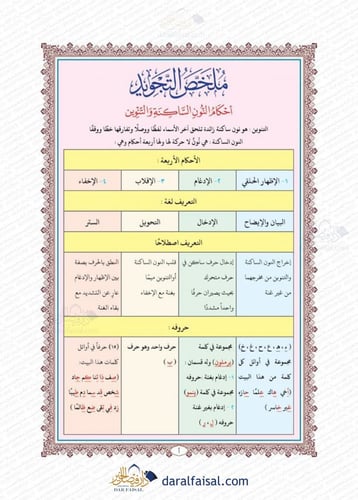 ملخص التجويد
أحكام النون الساكنة والتنوين
التنوين : هو نون ساكنة زائدة تلحق آخر الأسماء لفظًا ووصلًا وتفارقها خطًا ووقفًا
النون الساكنة : هي نُونٌ لا حركة لها ولها أربعة أحكام وهي :
الأحكام الأربعة :
١- الإظهار الحلقي
٢- الإدغام
٣- الإقلاب
٤- الإخفاء
التعريف لغة :
البيان والإيضاح
الإدخال
التحويل
الستر
التعريف اصطلاحًا
إخراج النون الساكنة
والتنوين من مخرجهما
من غير غنة
إدخال حرف ساكن في
حرف متحرك
بحيث يصيران حرفًا
واحداً مشددًا
قلب النون الساكنة
أو التنوين ميمًا
بغنة مع الإخفاء
النطق بالحرف بصفة
بين الإظهار والإدغام
عارٍ عن التشديد مع
بقاء الغنة
حروفه :
( ء ، هـ ، ع ، ح ، غ ، خ )
مجموعة في أوائل كل
كلمة من هذا البيت:
(أخي هاك علمًا حازه
غير خاسر)
مجموعة في كلمة
(يرملون) وله قسمان :
١- إدغام بغنة حروفه
كلمة (ينمو)
٢- إدغام بغير غنة
حروفه ( ل ، ر )
حرف واحد وهو حرف
( ب )
(١٥) حرفاً في أوائل
كلمات هذا البيت:
(صف ذا ثنا كم جاد
شخص قد سما دم طيبًا
زد في تقى ضع ظالما)
١
دار فيصل الخير
DAR FAISAL
daralfaisal.com